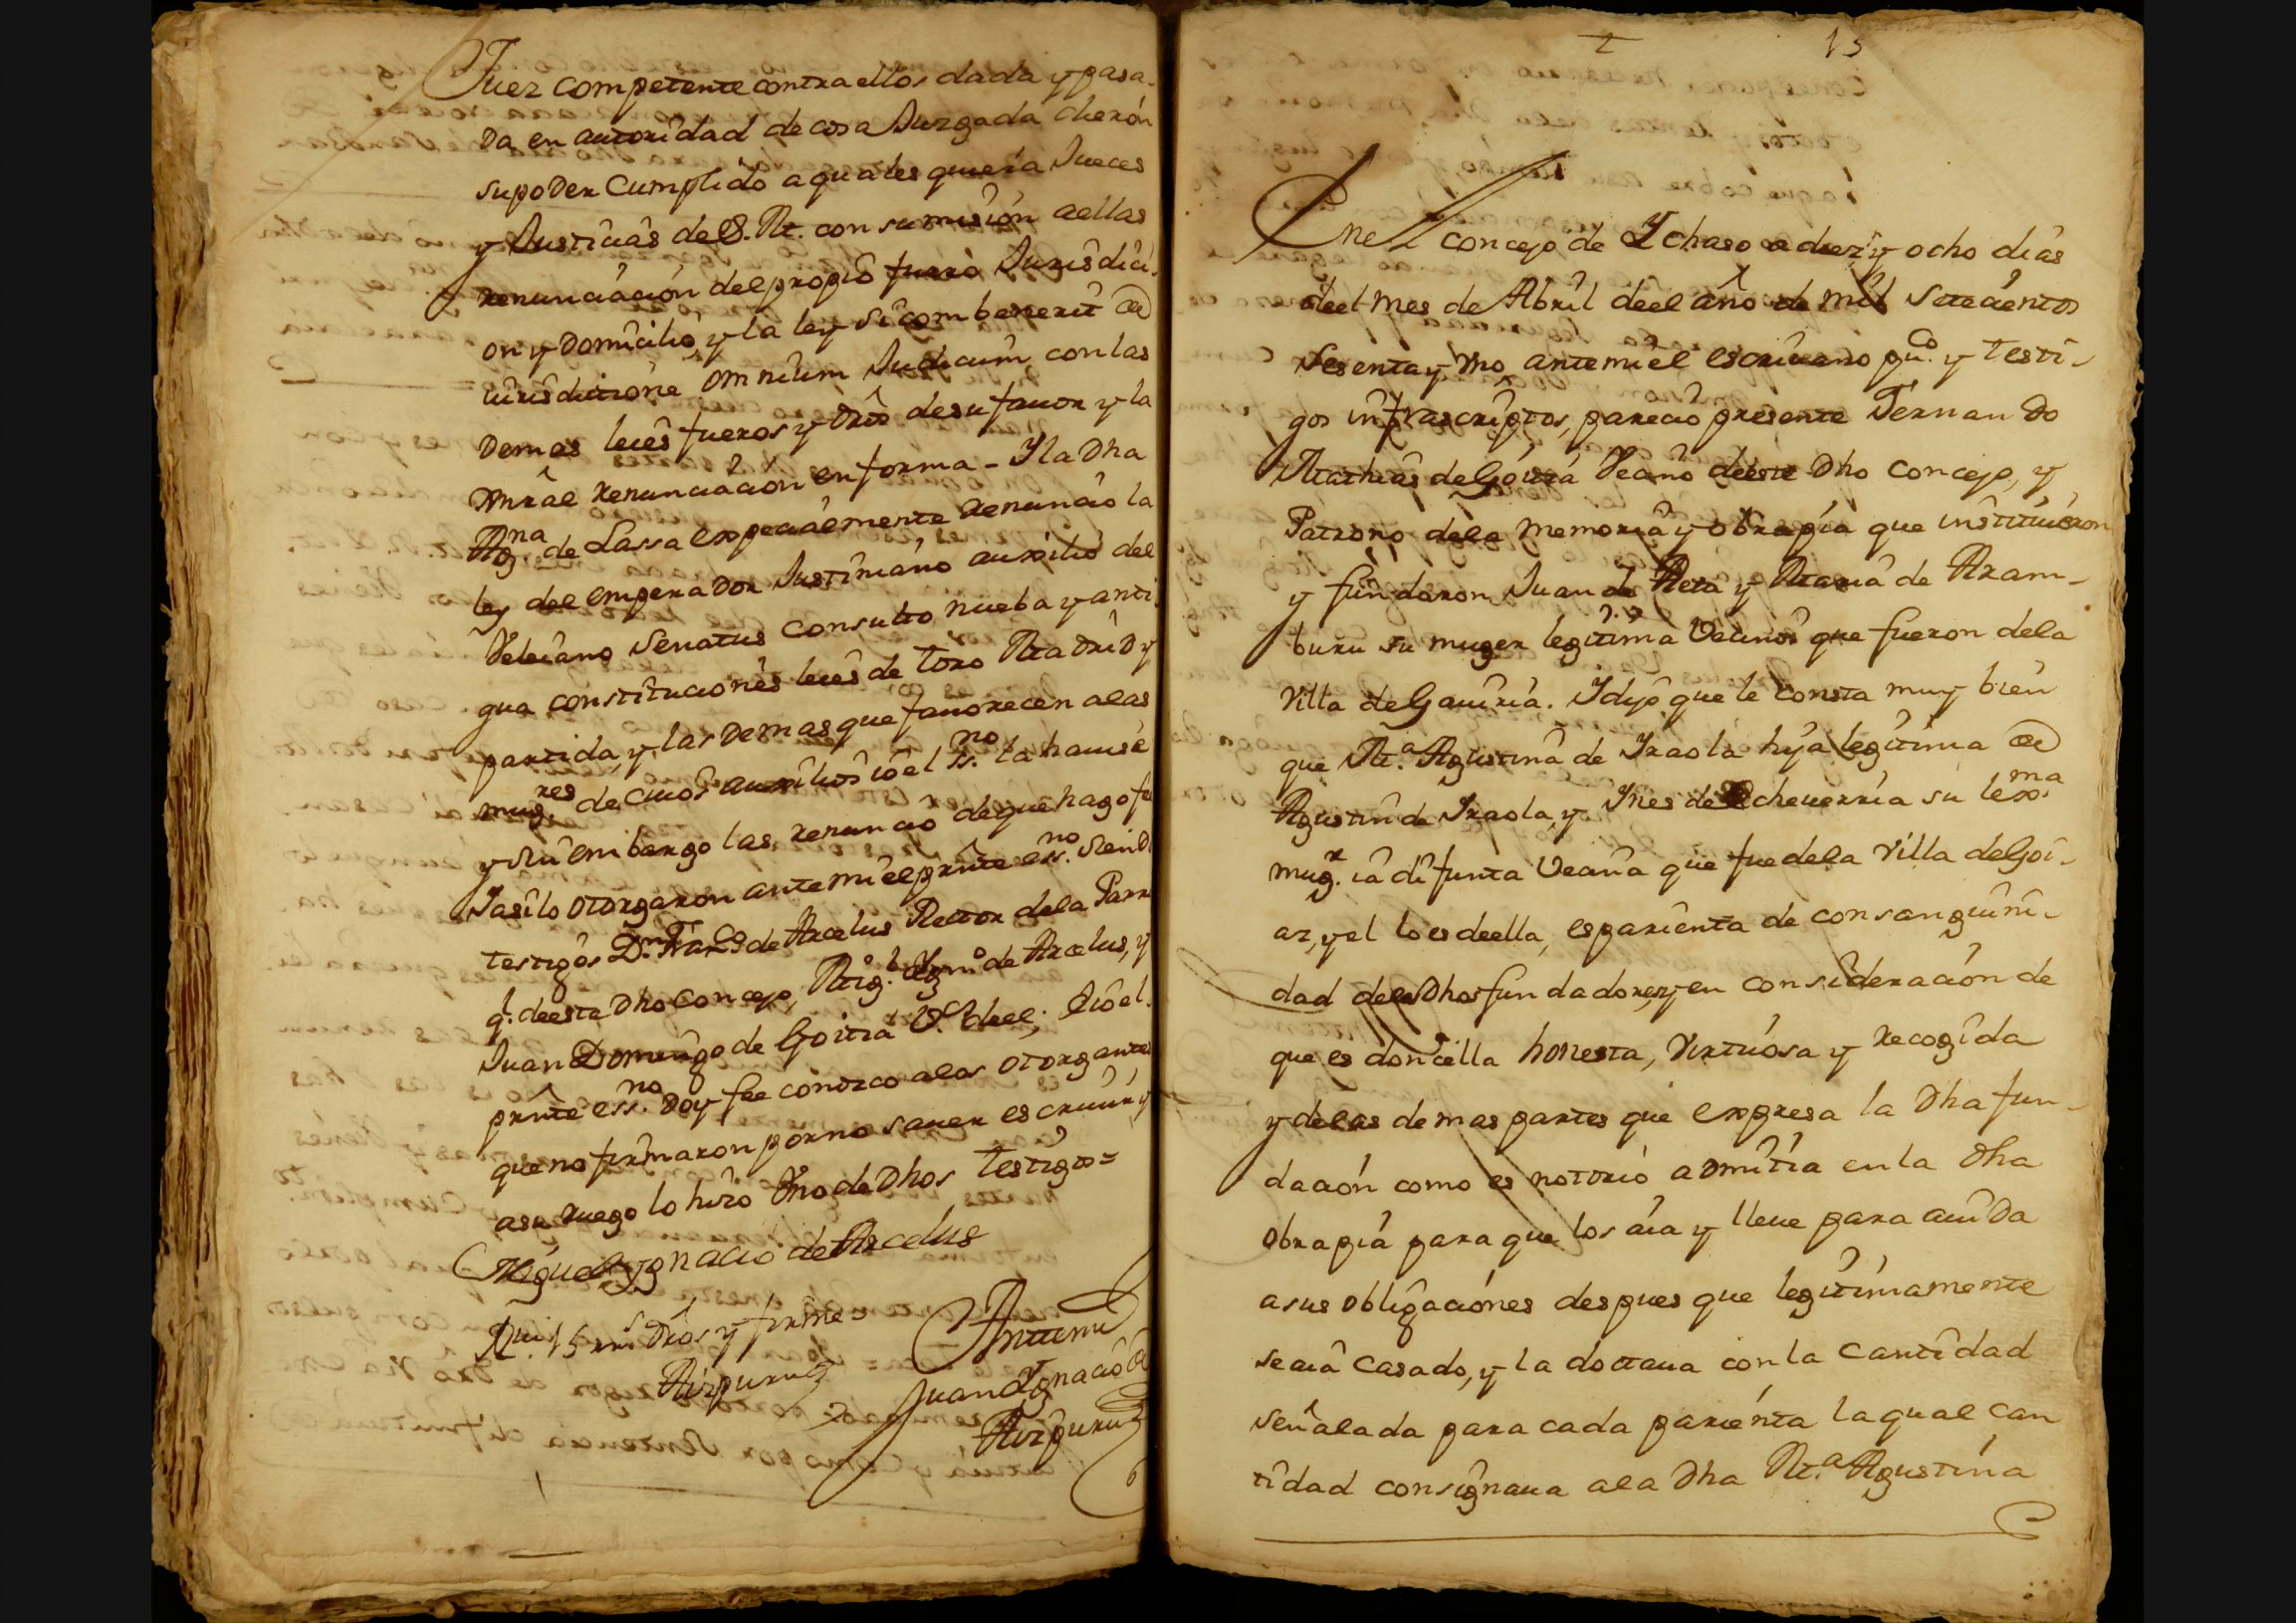 Juez competente contra ellos dada y pasa-
da en autoridad de cosa Juzgada dieron
su poder Cumplido a quales quiera Jueces
y Justicias de S. M. con sumision a ellas
renunciación del propio fuero Jurisdici-
on y Domicilio, y la ley si combenerit de
iurisdictione omnium Judicum con las
demas leies fueros y dros de su favor y la
gnral renunciación en forma - Y la Dha
Ag.na de Lassa especialmente renunció la
ley del emperador Justiniano auxilio del
Veleiano Senatus consulto nueba y anti
gua constituciones leies de Toro Madrid y
partida, y las demas que favorecen a las
mug.res de cuios auxilios io el ss.no la havise
y sin embargo las renunció de que hago fe
Y asi lo otorgaron ante mi el prnte ess.no siendo
testigos D.n Fran.co de Arcelus Rector de la Parr
q.l de este Dho Concejo, Mig.l Ygn.o de Arcelus, y
Juan Domingo de Goitia V.s de el; E io el
prnte ess.no doy fee conozco a los otorgantes
que no firmaron por no saver escrivir y
a su ruego lo hizo Uno de Dhos Testigos=
Miguel Ygnacio de Arcelus
Rui. 15 mrs Dros y firme=
Aizpuru
Ante mi
Juan Ygnacio de
Aizpuru
13
En el concejo de Ychaso a diez y ocho dias
de el mes de Abril de el año de mil Setecientos
Sesenta y Uno, ante mi el escrivano pu.co y testi-
gos infrascriptos, pareció presente Fernando
Mathias de Goitia Vecino de este Dho Concejo, y
Patrono de la memoria y obrapia que instituieron
y fundaron Juan de Reta y Maria de Aram-
buru su muger legitima Vecinos que fueron de la
Villa de Gaviria. Y dijo que le consta muy bien
que M.a Agustina de Iraola hija legitima de
Agustin de Iraola, y Ines de Echeverria su lex.ma
mug.r ia difunta Vecina que fue de la Villa de Goi-
az, y el lo es de ella, es parienta de consanguini-
dad de los Dhos fundadores, y en consideración de
que es doncella honesta, Virtuosa y recogida
y de las demas partes que expresa la Dha fun-
dación como es notorio admitia en la Dha
Obrapia para que los aia y lleve para aiuda
a sus obligaciones despues que legitimamente
se aia Casado, y la dottava con la Cantidad
señalada para cada parienta la qual can
tidad consignava a la Dha M.a Agustina